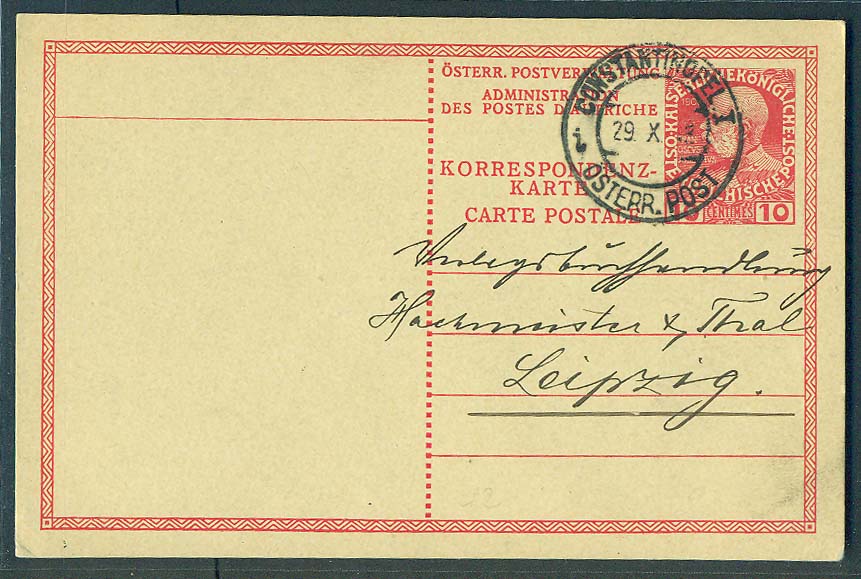 ÖSTERR. POSTVERWALTUNG
ADMINISTRATION
DES POSTES D'AUTRICHE
KORRESPONDENZ-
KARTE
CARTE POSTALE
CONSTANTINOPEL I
29. X.
i
ÖSTERR. POST
10 CENTIMES 10
Verlagsbuchhandlung
Hachmeister & Thal
Leipzig.